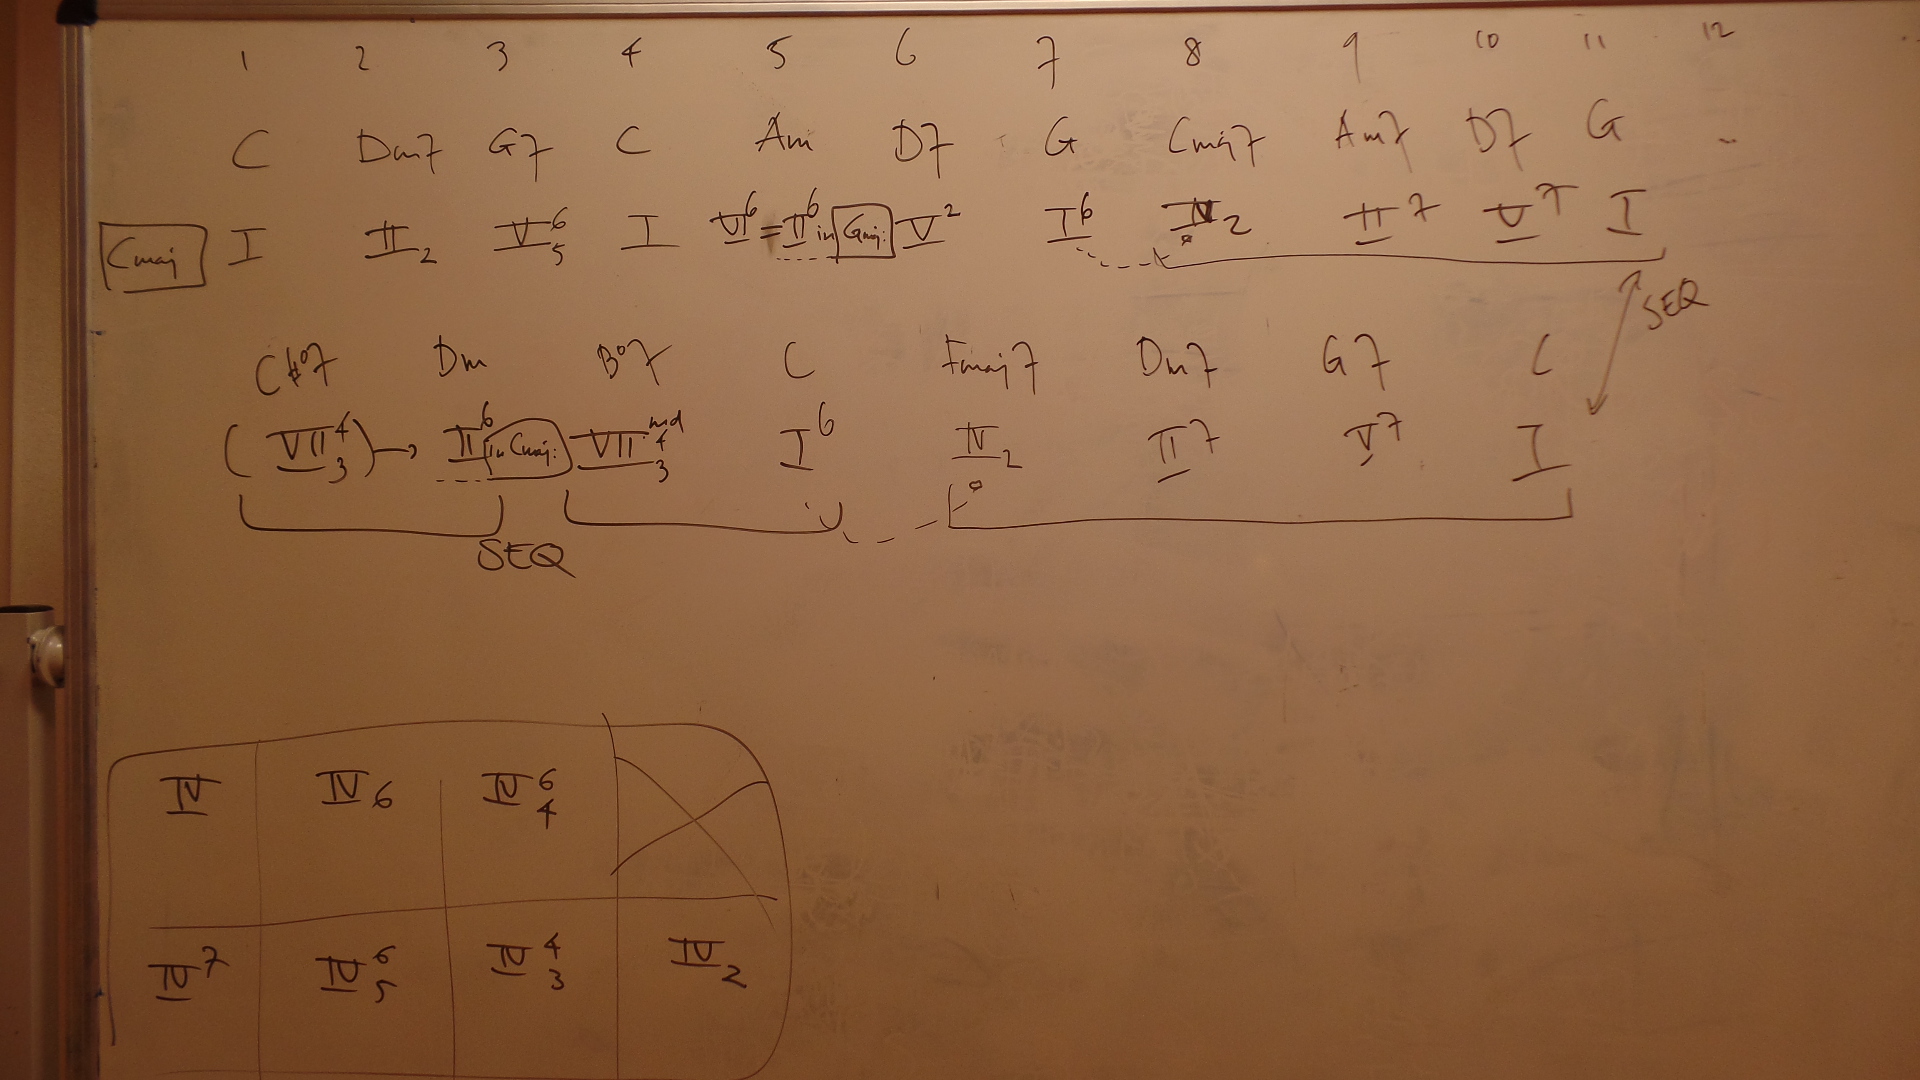 1 2 3 4 5 6 7 8 9 10 11 12
C Dm7 G7 C Am D7 G Cmaj7 Am7 D7 G ..
Cmaj I II2 V65 I VI6 = II6 in Gmaj: V2 I6 IV2 II7 V7 I
SEQ
C#°7 Dm B°7 C Fmaj7 Dm7 G7 C
(VII43) → II6 in Cmaj: VII43 I6 IV2 II7 V7 I
SEQ
IV IV6 IV64
IV7 IV65 IV43 IV2